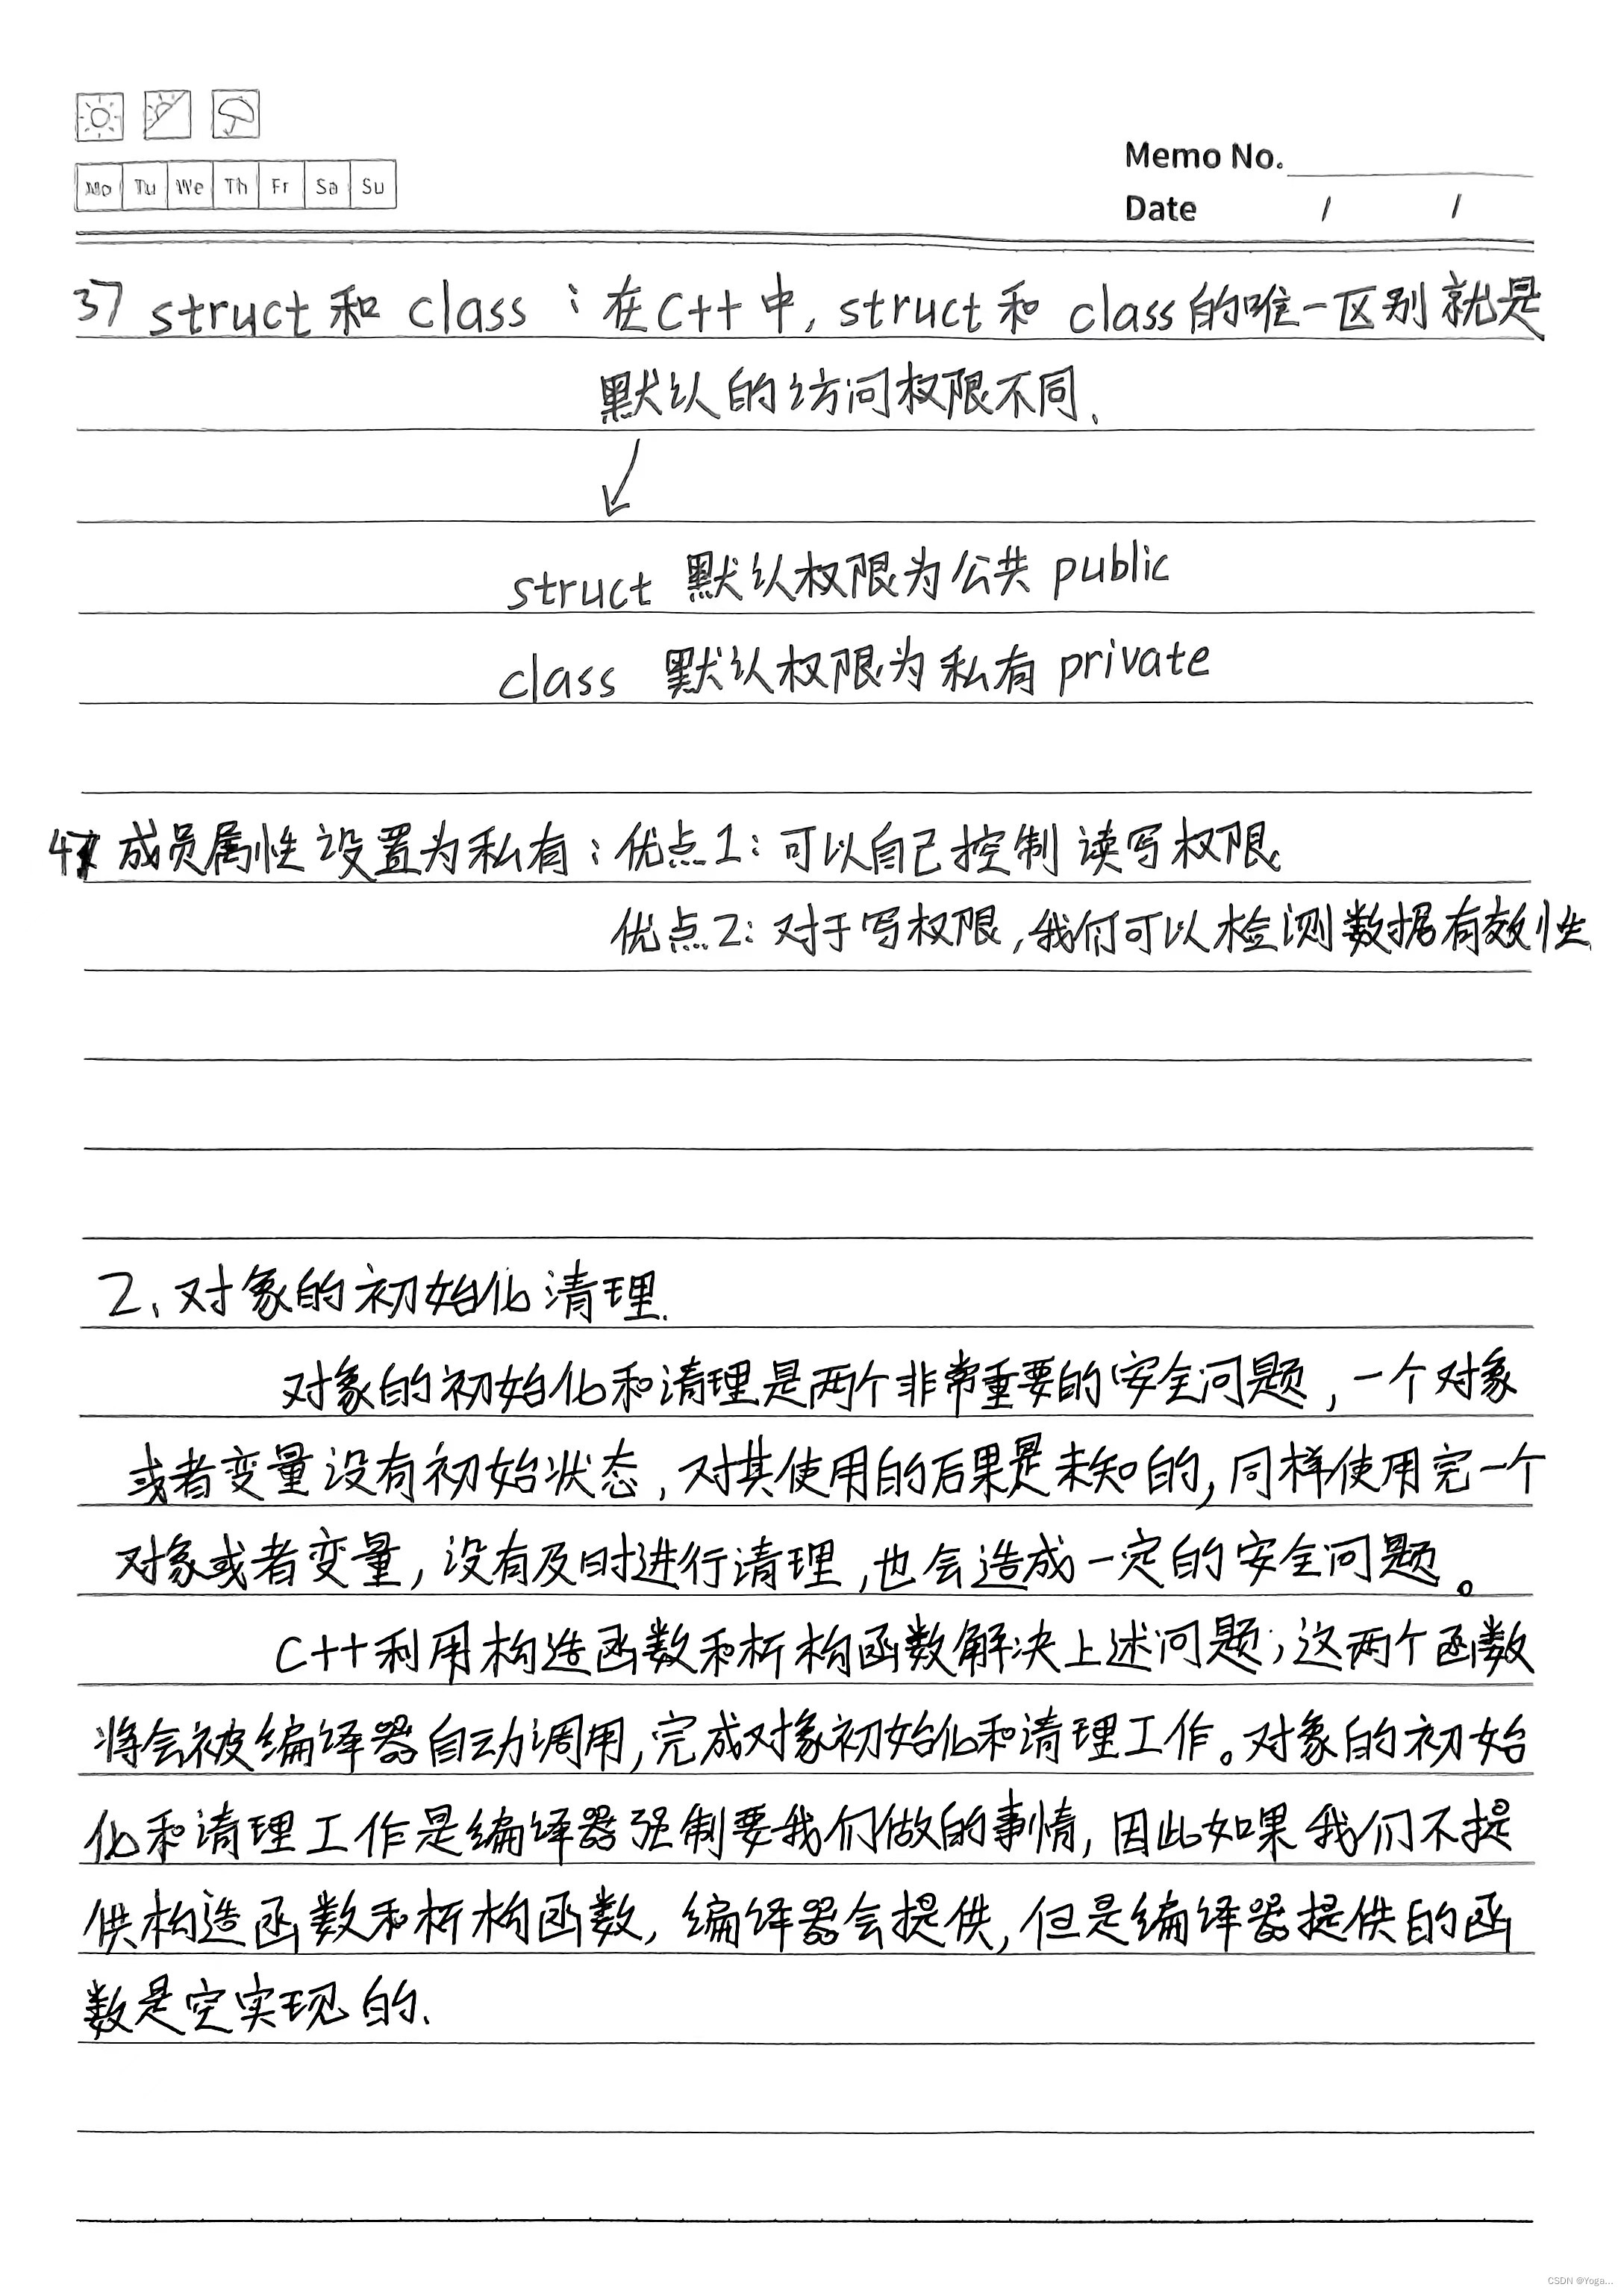 Mo Tu We Th Fr Sa Su
Memo No.
Date / /
37 struct 和 class : 在C++中, struct 和 class的唯一区别就是
默认的访问权限不同.
struct 默认权限为公共 public
class 默认权限为私有 private
47 成员属性设置为私有: 优点1: 可以自己控制读写权限
优点2: 对于写权限,我们可以检测数据有效性
2、对象的初始化清理.
对象的初始化和清理是两个非常重要的安全问题,一个对象
或者变量没有初始状态,对其使用的后果是未知的,同样使用完一个
对象或者变量,没有及时进行清理,也会造成一定的安全问题。
C++利用构造函数和析构函数解决上述问题,这两个函数
将会被编译器自动调用,完成对象初始化和清理工作。对象的初始
化和清理工作是编译器强制要我们做的事情,因此如果我们不提
供构造函数和析构函数,编译器会提供,但是编译器提供的函
数是空实现的.
CSDN @Yoga...